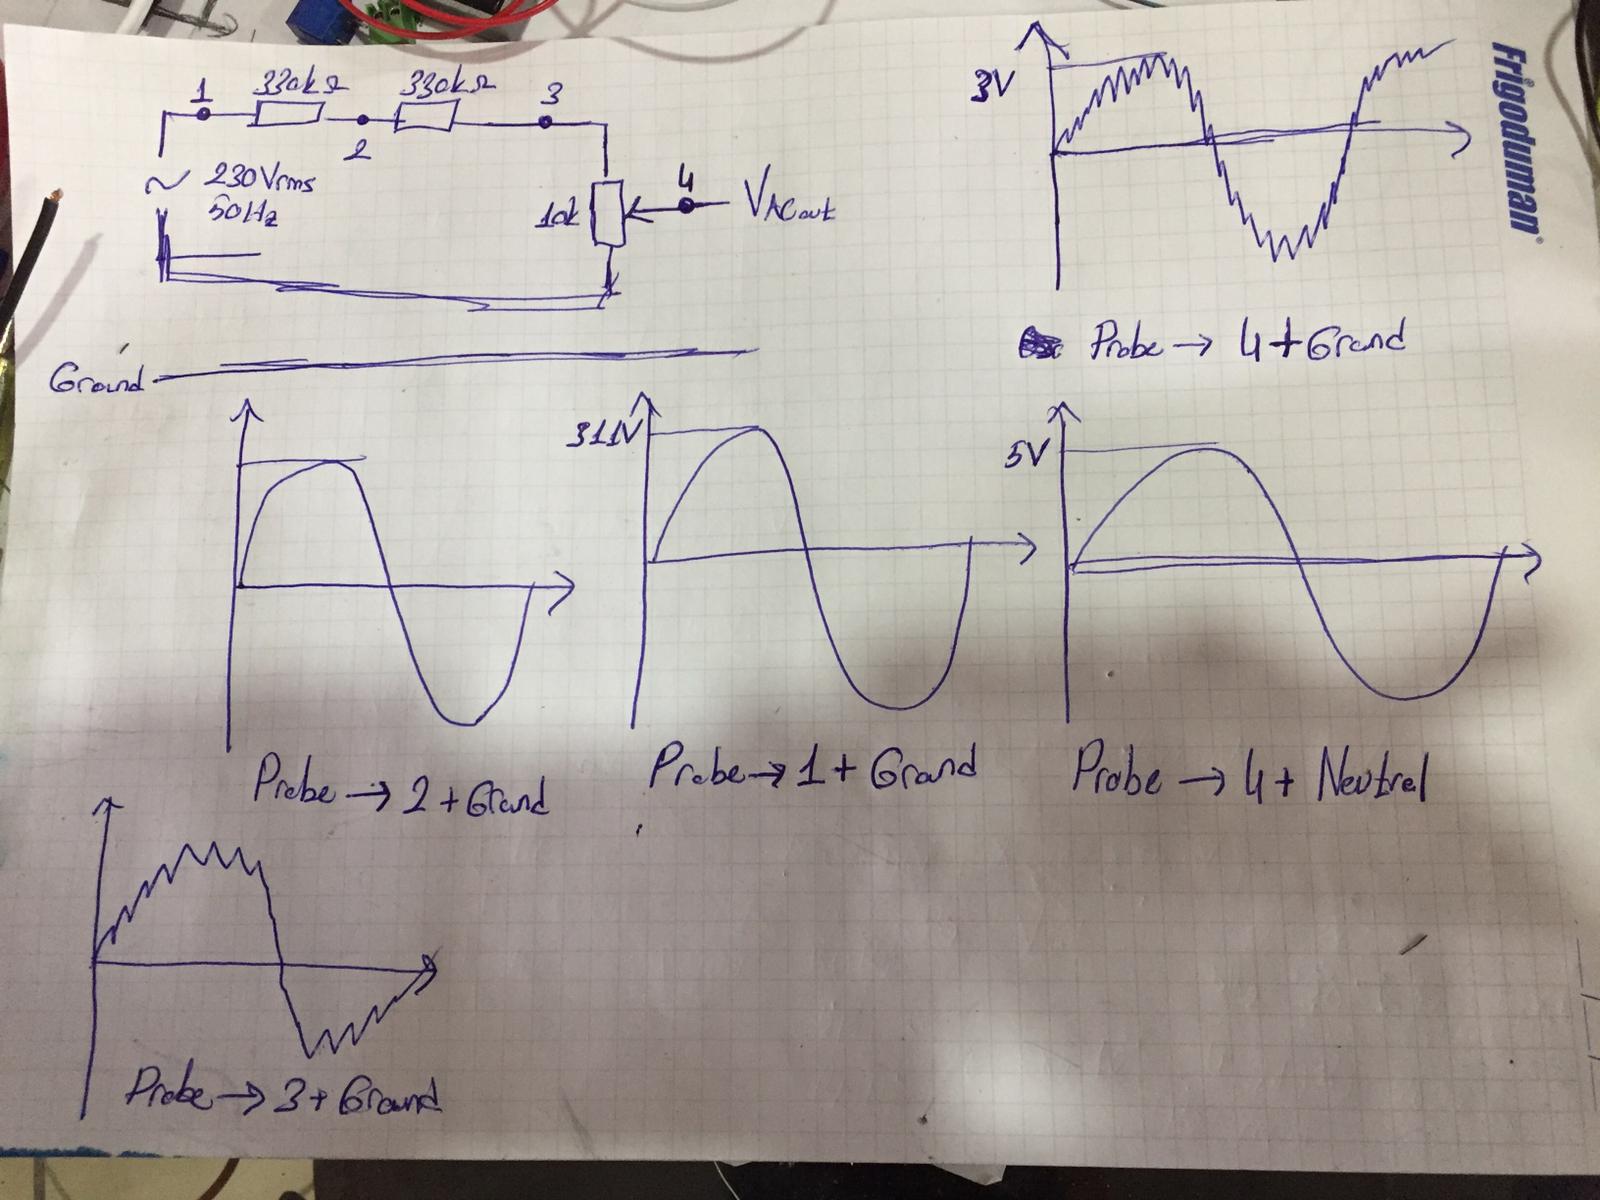 1 330kΩ 330kΩ 3
2
~ 230Vrms
50Hz
10k
4
VACout
Ground
3V
Probe → 4+Grand
Frigoduman
Probe → 2+Grand
311V
Probe → 1+ Grand
5V
Probe → 4+ Neutrel
Probe → 3+ Ground